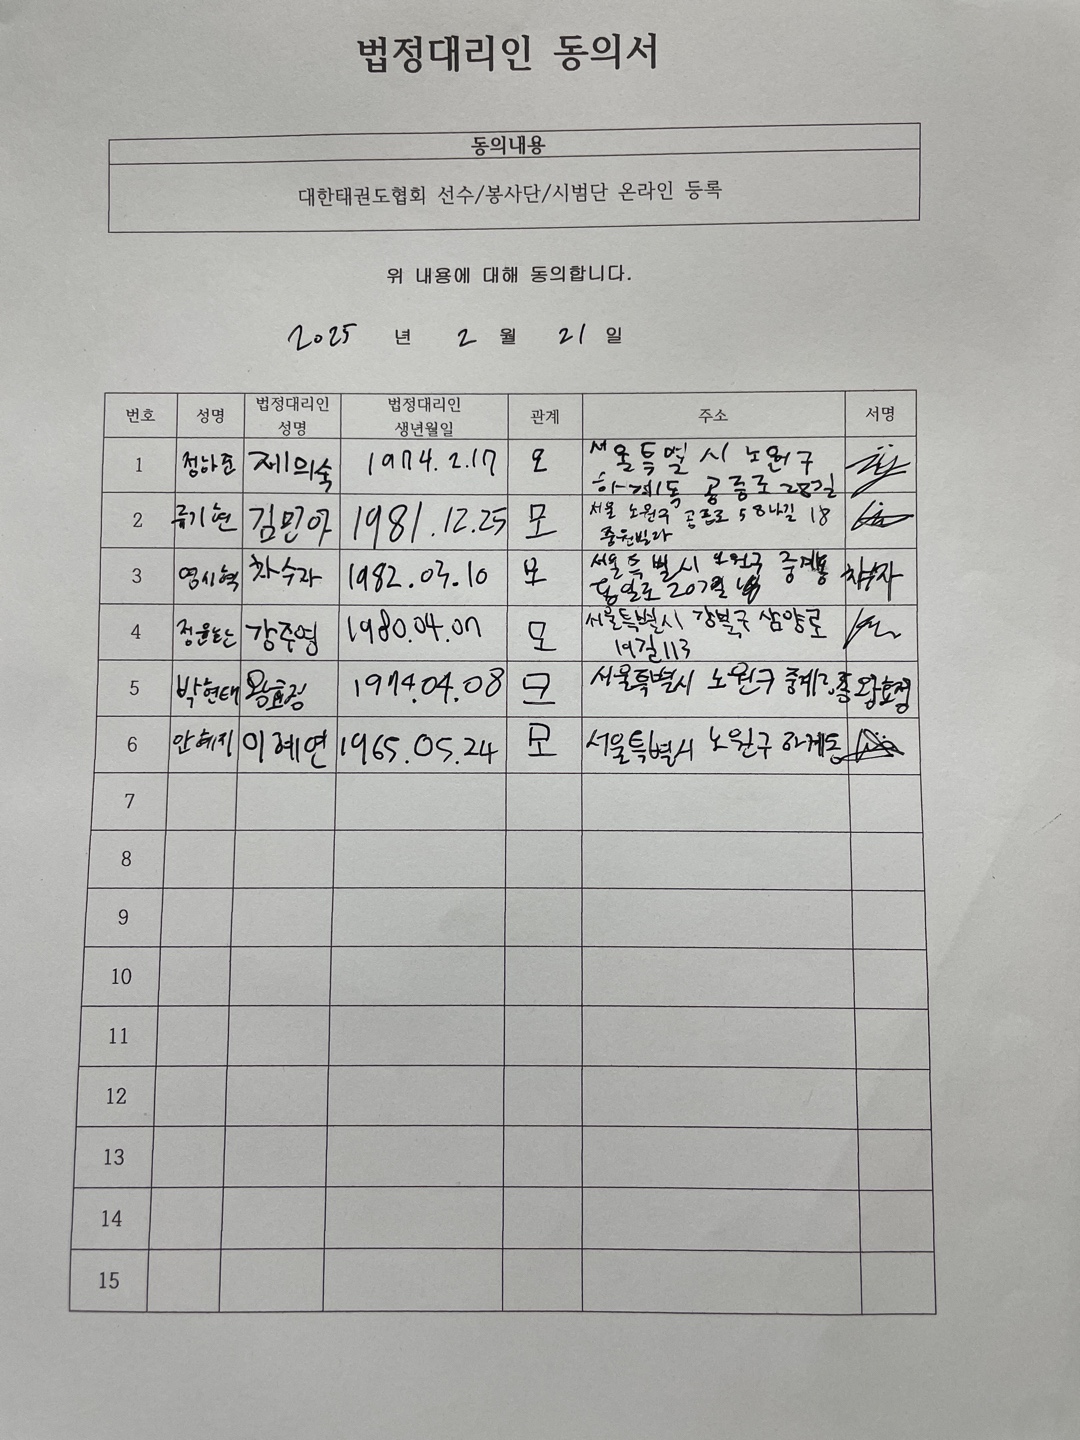 법정대리인 동의서
동의내용
대한태권도협회 선수/봉사단/시범단 온라인 등록
위 내용에 대해 동의합니다.
2025 년 2 월 21 일
번호 성명 법정대리인 성명 법정대리인 생년월일 관계 주소 서명
1 정하준 제의숙 1974.2.17 모 서울특별시 노원구
하계1동 공릉로 28길
2 류기현 김민아 1981.12.25 모 서울 노원구 공릉로 58나길 18
중원빌라
3 염시혁 차수자 1982.03.10 모 서울특별시 노원구 중계동
동일로 207길 차수자
4 강주영 1980.04.07 모 서울특별시 강북구 삼양로
19길 113
5 박현태 왕효정 1974.04.08 모 서울특별시 노원구 중계2,3동 왕효정
6 안혜지 이혜연 1965.05.24 모 서울특별시 노원구 하계동
7
8
9
10
11
12
13
14
15